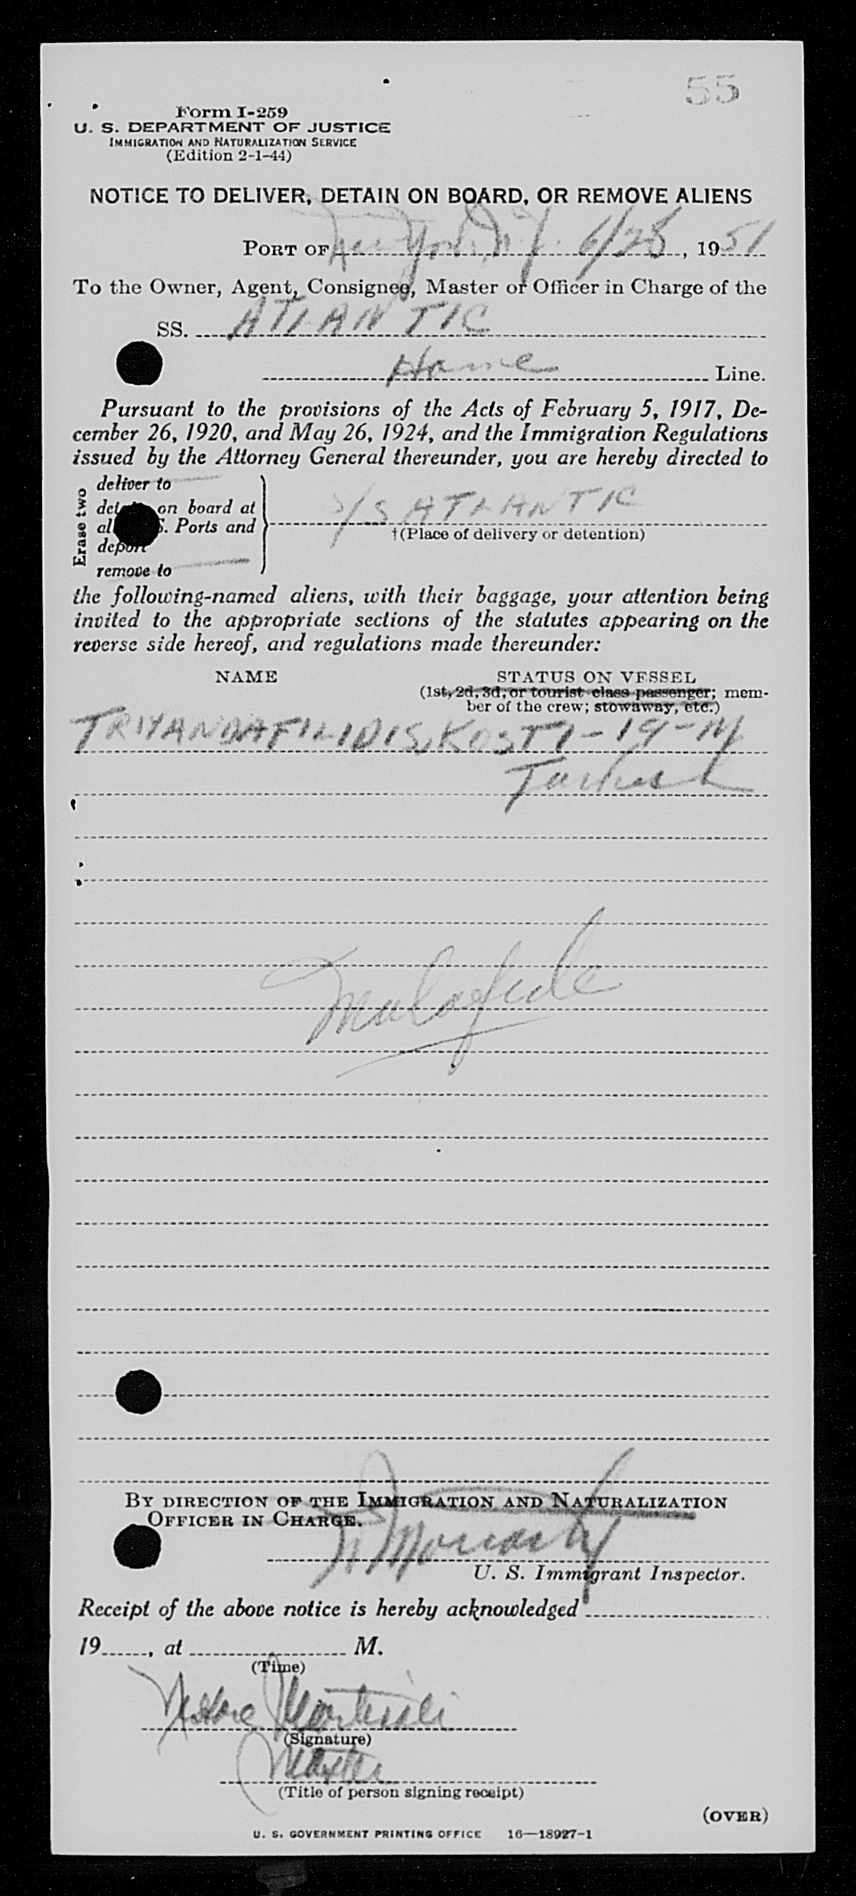 55
Form I-259
U. S. DEPARTMENT OF JUSTICE
IMMIGRATION AND NATURALIZATION SERVICE
(Edition 2-1-44)
NOTICE TO DELIVER, DETAIN ON BOARD, OR REMOVE ALIENS
PORT OF New York, N.Y. 6/28, 1951
To the Owner, Agent, Consignee, Master or Officer in Charge of the
SS. ATLANTIC
Home Line.
Pursuant to the provisions of the Acts of February 5, 1917, De-
cember 26, 1920, and May 26, 1924, and the Immigration Regulations
issued by the Attorney General thereunder, you are hereby directed to
Erase two
deliver to
on board at
S. Ports and
deport
remove to
S/S ATLANTIC
†(Place of delivery or detention)
the following-named aliens, with their baggage, your attention being
invited to the appropriate sections of the statutes appearing on the
reverse side hereof, and regulations made thereunder:
NAME STATUS ON VESSEL
(1st, 2d, 3d, or tourist class passenger; mem-
ber of the crew; stowaway, etc.)
TRIYANDAFILIDIS, KOSTI - 19 - M
Turkish
Malafide
BY DIRECTION OF THE IMMIGRATION AND NATURALIZATION
OFFICER IN CHARGE.
Moriarty
U. S. Immigrant Inspector.
Receipt of the above notice is hereby acknowledged
19 , at M.
(Time)
(Signature)
Master
(Title of person signing receipt)
(OVER)
U. S. GOVERNMENT PRINTING OFFICE 16—18927-1